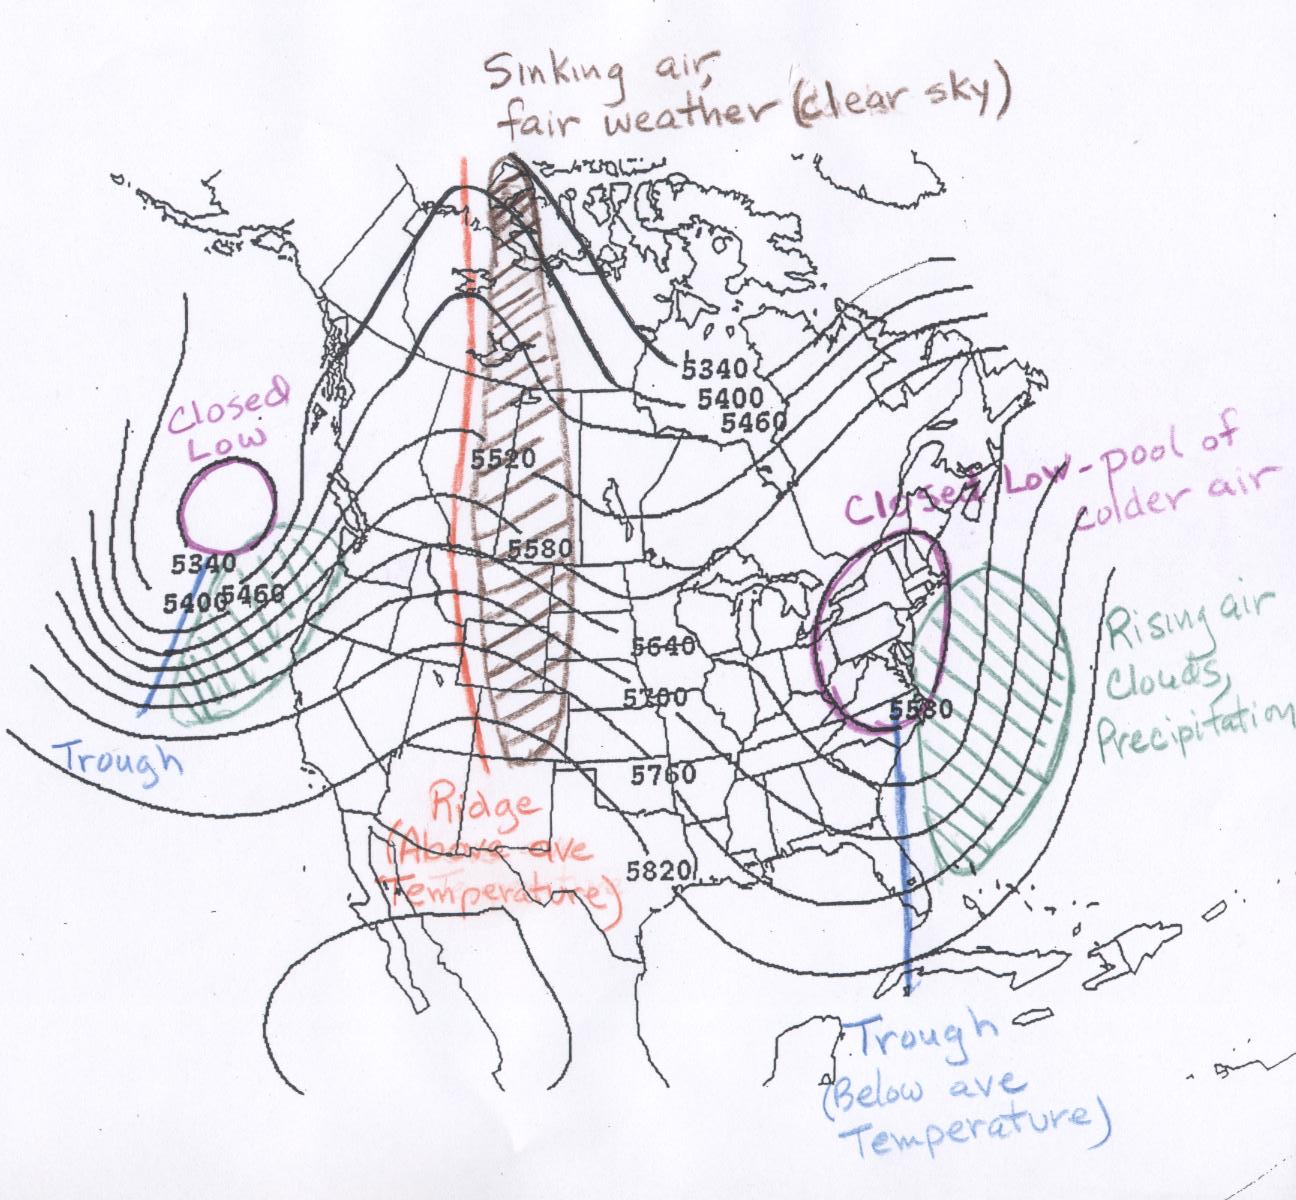 Sinking air,
fair weather (clear sky)
5340
5400
5460
Closed
Low
5520
Closed Low-pool of
colder air
5580
5340
5400
5460
Rising air
Clouds,
Precipitation
5640
5700
5580
Trough
5760
Ridge
(Above ave
Temperature)
5820
Trough
(Below ave
Temperature)